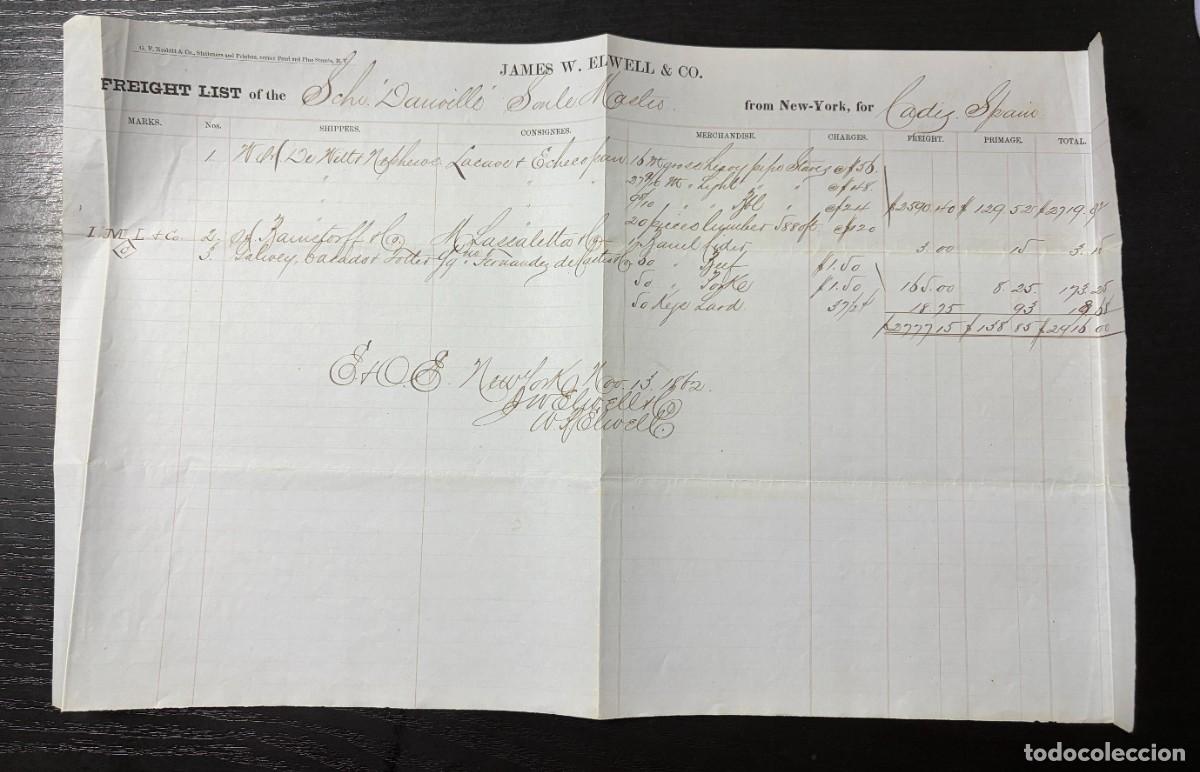 G. F. Nesbitt & Co., Stationers and Printers, corner Pearl and Pine Streets, N.Y.
JAMES W. ELWELL & CO.
FREIGHT LIST of the Schr. "Danville" Soule Master from New-York, for Cadiz Spain
MARKS. Nos. SHIPPERS. CONSIGNEES. MERCHANDISE. CHARGES. FREIGHT. PRIMAGE. TOTAL.
1 De Witt & Nephews Lacave & Echecopar 16 M gross heavy pipe Staves @ $56
" " M " Light " " @ $48
" " " " Bbl " @ $24 $2590.40 $129.52 $2719.92
20 pieces lumber 880 ft @ $20
L & Co 2 & Co M Lascaletta & Co 1 Barrel Cider 3.00 15 3.15
3 Galwey, Casado & Fernandez de Castro & Co 50 " Beef $1.50
50 " Pork $1.50 165.00 8.25 173.25
50 Kegs Lard 37½ 18.75 93 19.68
$2777.15 $138.85 $2916.00
E. & O. E. New York Nov. 13. 1862.
J W Elwell & Co
Elwell
todocoleccion